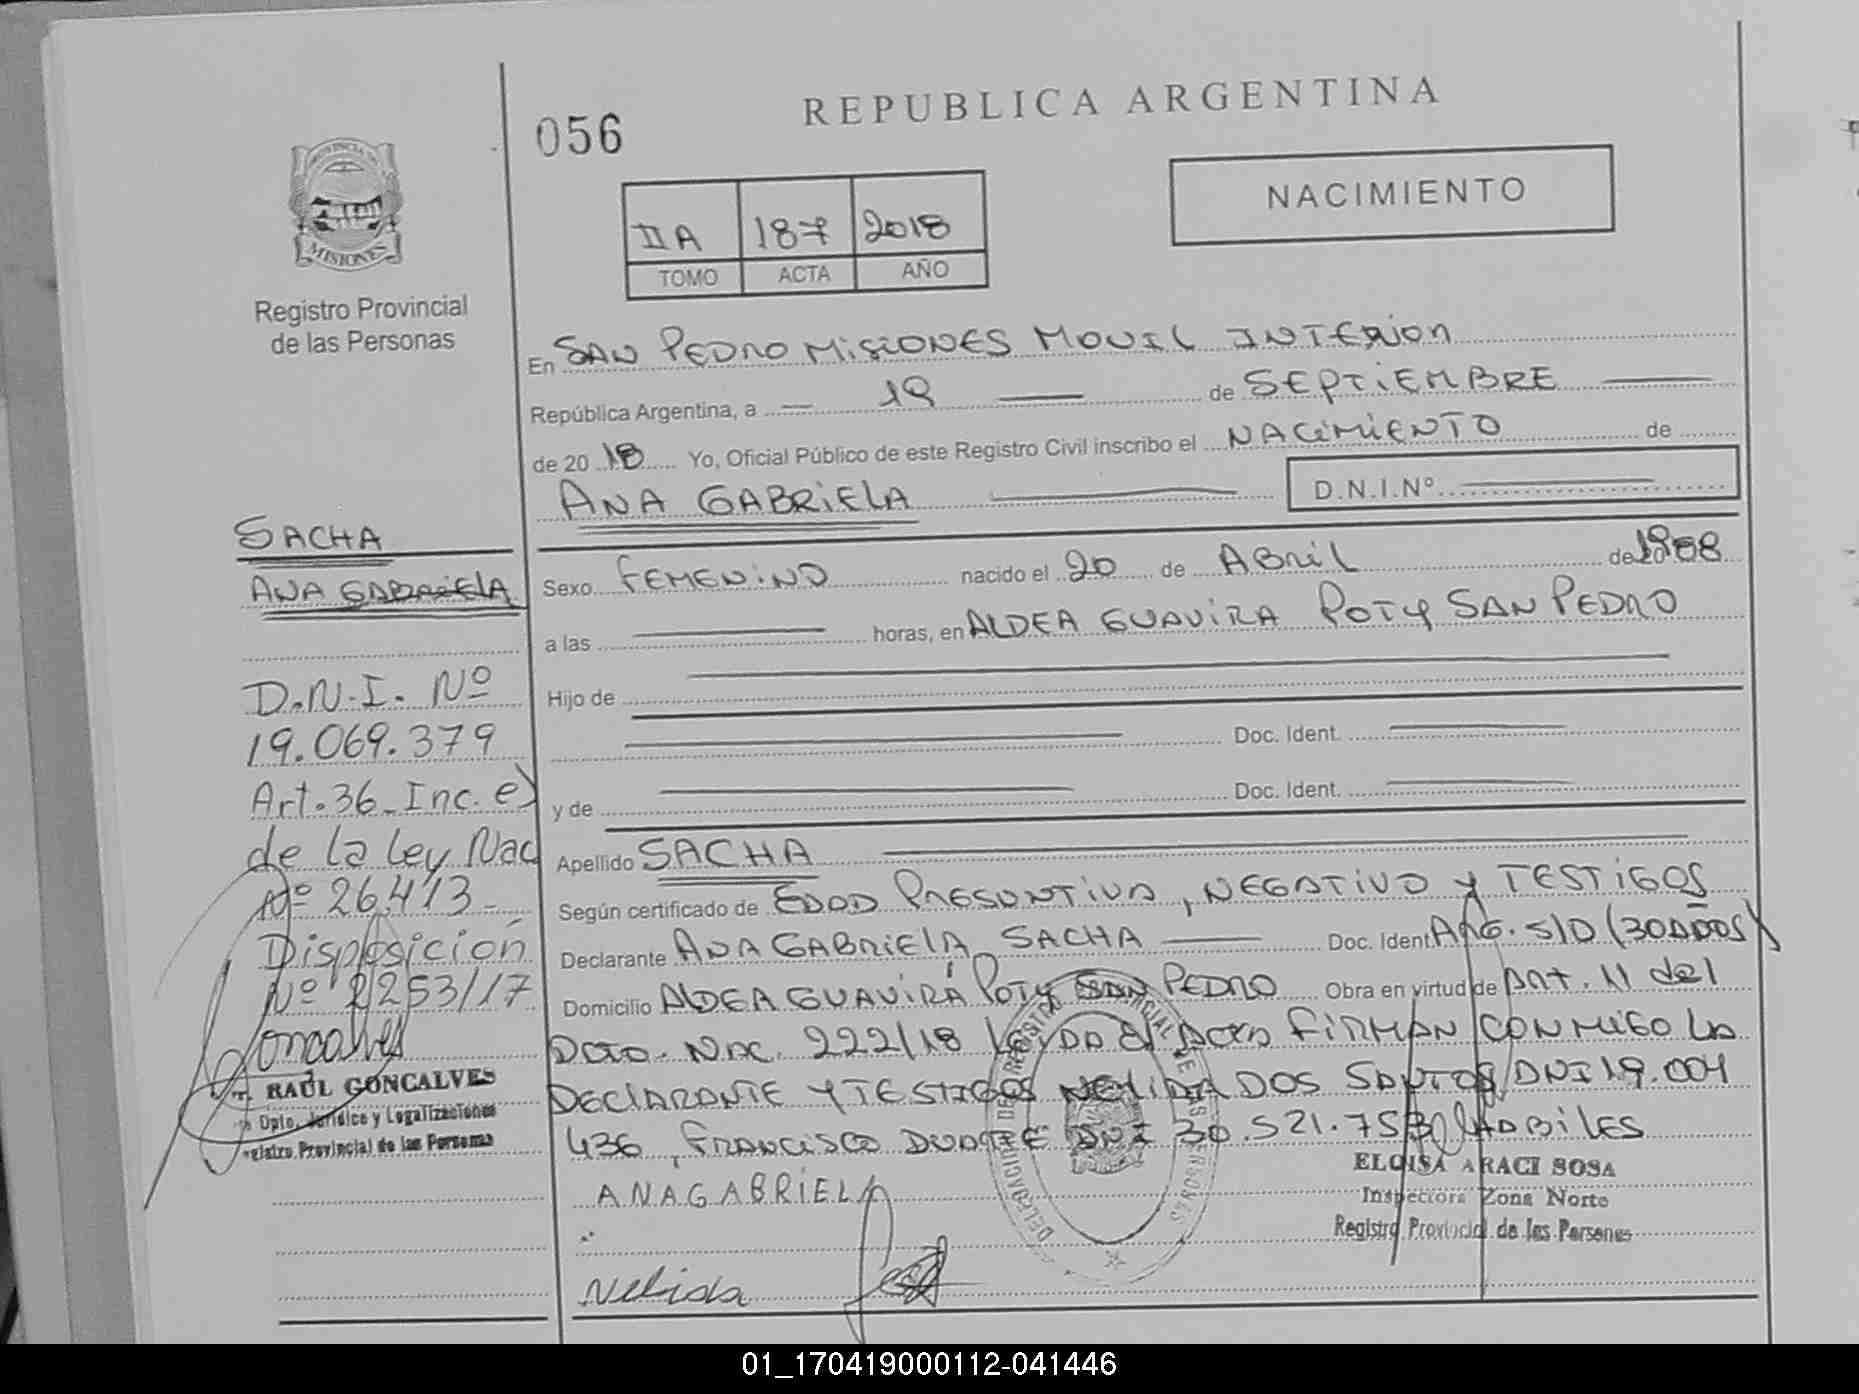 056
REPUBLICA ARGENTINA
NACIMIENTO
II A 187 2018
TOMO ACTA AÑO
PROVINCIA DE
MISIONES
Registro Provincial
de las Personas
En SAN PEDRO MISIONES MOVIL INTERIOR
República Argentina, a 19 de SEPTIEMBRE
de 20 18 Yo, Oficial Público de este Registro Civil inscribo el NACIMIENTO de
ANA GABRIELA D.N.I.Nº
Sexo FEMENINO nacido el 20 de ABRIL de 1988
a las horas, en ALDEA GUAVIRA POTY SAN PEDRO
Hijo de
Doc. Ident.
y de Doc. Ident.
Apellido SACHA
Según certificado de EDAD PRESUNTIVA, NEGATIVO Y TESTIGOS
Declarante ANA GABRIELA SACHA Doc. Ident ARG. S/D (30 AÑOS)
Domicilio ALDEA GUAVIRÁ POTY SAN PEDRO Obra en virtud de ART. 11 del
DCTO. NAC. 222/18 LEIDA EL ACTA FIRMAN CONMIGO LA
DECLARANTE Y TESTIGOS NELIDA DOS SANTOS DNI 19.004
436, FRANCISCO DUARTE DNI 30.521.753 HABILES
ANA GABRIELA
Nelida
ELOISA ARACI SOSA
Inspectora Zona Norte
Registro Provincial de las Personas
SACHA
ANA GABRIELA
D.N.I. Nº
19.069.379
Art. 36 Inc. e)
de la Ley Nac
Nº 26.413
Disposición
Nº 2253/17
Goncalves
RAUL GONCALVES
Dpto. Jurídico y Legalizaciones
Registro Provincial de las Personas
01_170419000112-041446